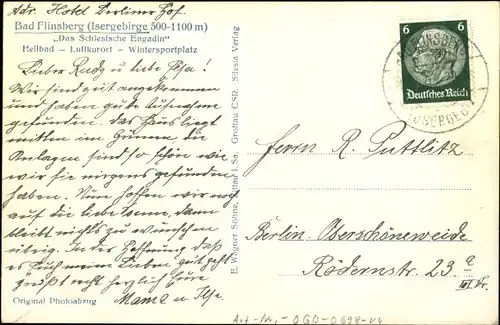 Adr. Hotel Berliner Hof.
Bad Flinsberg (Isergebirge 500-1100 m)
„Das Schlesische Engadin"
Heilbad — Luftkurort — Wintersportplatz
Lieber Rudy u liebe Ilse!
Wir sind gut angekommen
und haben gute Aufnahme
gefunden. Das Haus liegt
mitten im Grünen die
Anlagen sind so schön wie
wir sie nirgends gefunden
haben. Nun hoffen wir noch
auf die liebe Sonne, dann
bleibt nichts zu wünschen
übrig. In der Hoffnung daß
es Euch mein Lieben gut geht
grüßt recht herzlich Eure
Mama u Ilse.
Original Photoabzug
E. Wagner Söhne, Zittau i. Sa. Grottau CSR. Silesia Verlag
6 6
Deutsches Reich
Herrn R. Puttlitz
Berlin-Oberschöneweide
Rödernstr. 23 a
III Tr.
Art-Nr.-OGD-0698-V4